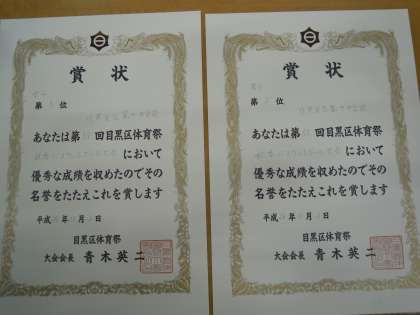 賞状
第 位
あなたは第 回目黒区体育祭
において
優秀な成績を収めたのでその
名誉をたたえこれを賞します
平成 年 月 日
目黒区体育祭
大会会長 青木英二
賞状
第 位
あなたは第 回目黒区体育祭
において
優秀な成績を収めたのでその
名誉をたたえこれを賞します
平成 年 月 日
目黒区体育祭
大会会長 青木英二